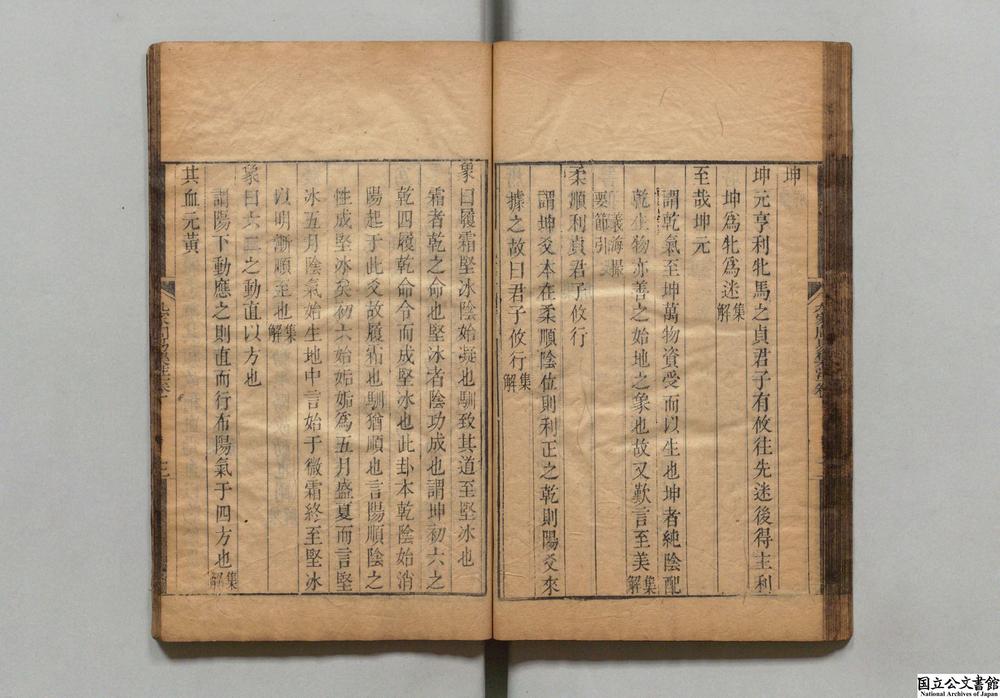 坤
坤元亨利牝馬之貞君子有攸往先迷後得主利
坤爲牝爲迷集解
至哉坤元
謂乾氣至坤萬物資受而以生也坤者純陰配
乾生物亦善之始地之象也故又歎言至美集解
義海撮要節引
柔順利貞君子攸行
謂坤爻本在柔順陰位則利正之乾則陽爻來
據之故曰君子攸行集解
象曰履霜堅冰陰始凝也馴致其道至堅冰也
霜者乾之命也堅冰者陰功成也謂坤初六之
乾四履乾命令而成堅冰也此卦本乾陰始消
陽起于此爻故履霜也馴猶順也言陽順陰之
性成堅冰矣初六始姤姤爲五月盛夏而言堅
冰五月陰氣始生地中言始于微霜終至堅冰
以明漸順至也集解
象曰六二之動直以方也
謂陽下動應之則直而行布陽氣于四方也集解
其血元黃
国立公文書館
National Archives of Japan